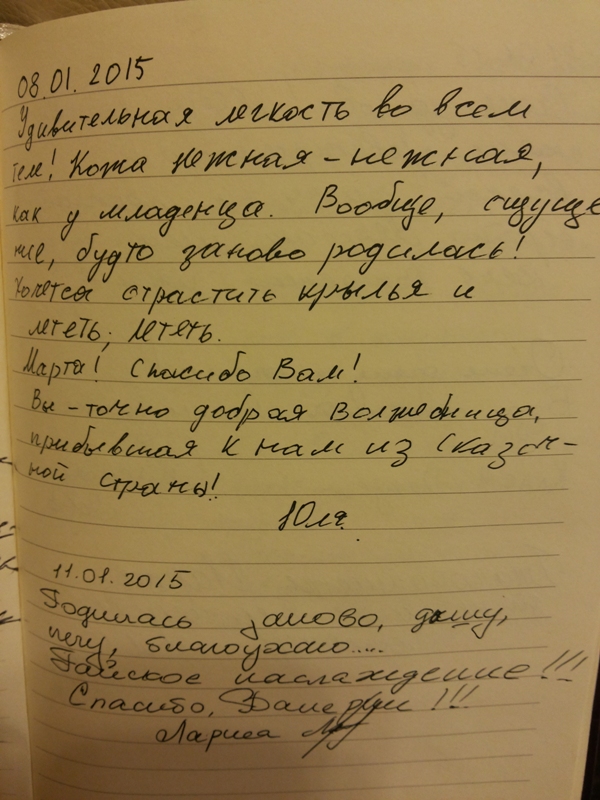 08.01.2015
Удивительная легкость во всем
теле! Кожа нежная-нежная,
как у младенца. Вообще, ощуще
ние, будто заново родилась!
Хочется отрастить крылья и
лететь, лететь.
Марта! Спасибо Вам!
Вы - точно добрая Волшебница,
прибывшая к нам из Сказоч-
ной страны!
Юля.
11.01.2015
Родилась заново, дышу,
лечу, благоухаю.....
Райское наслаждение!!!
Спасибо, !!!
Лариса